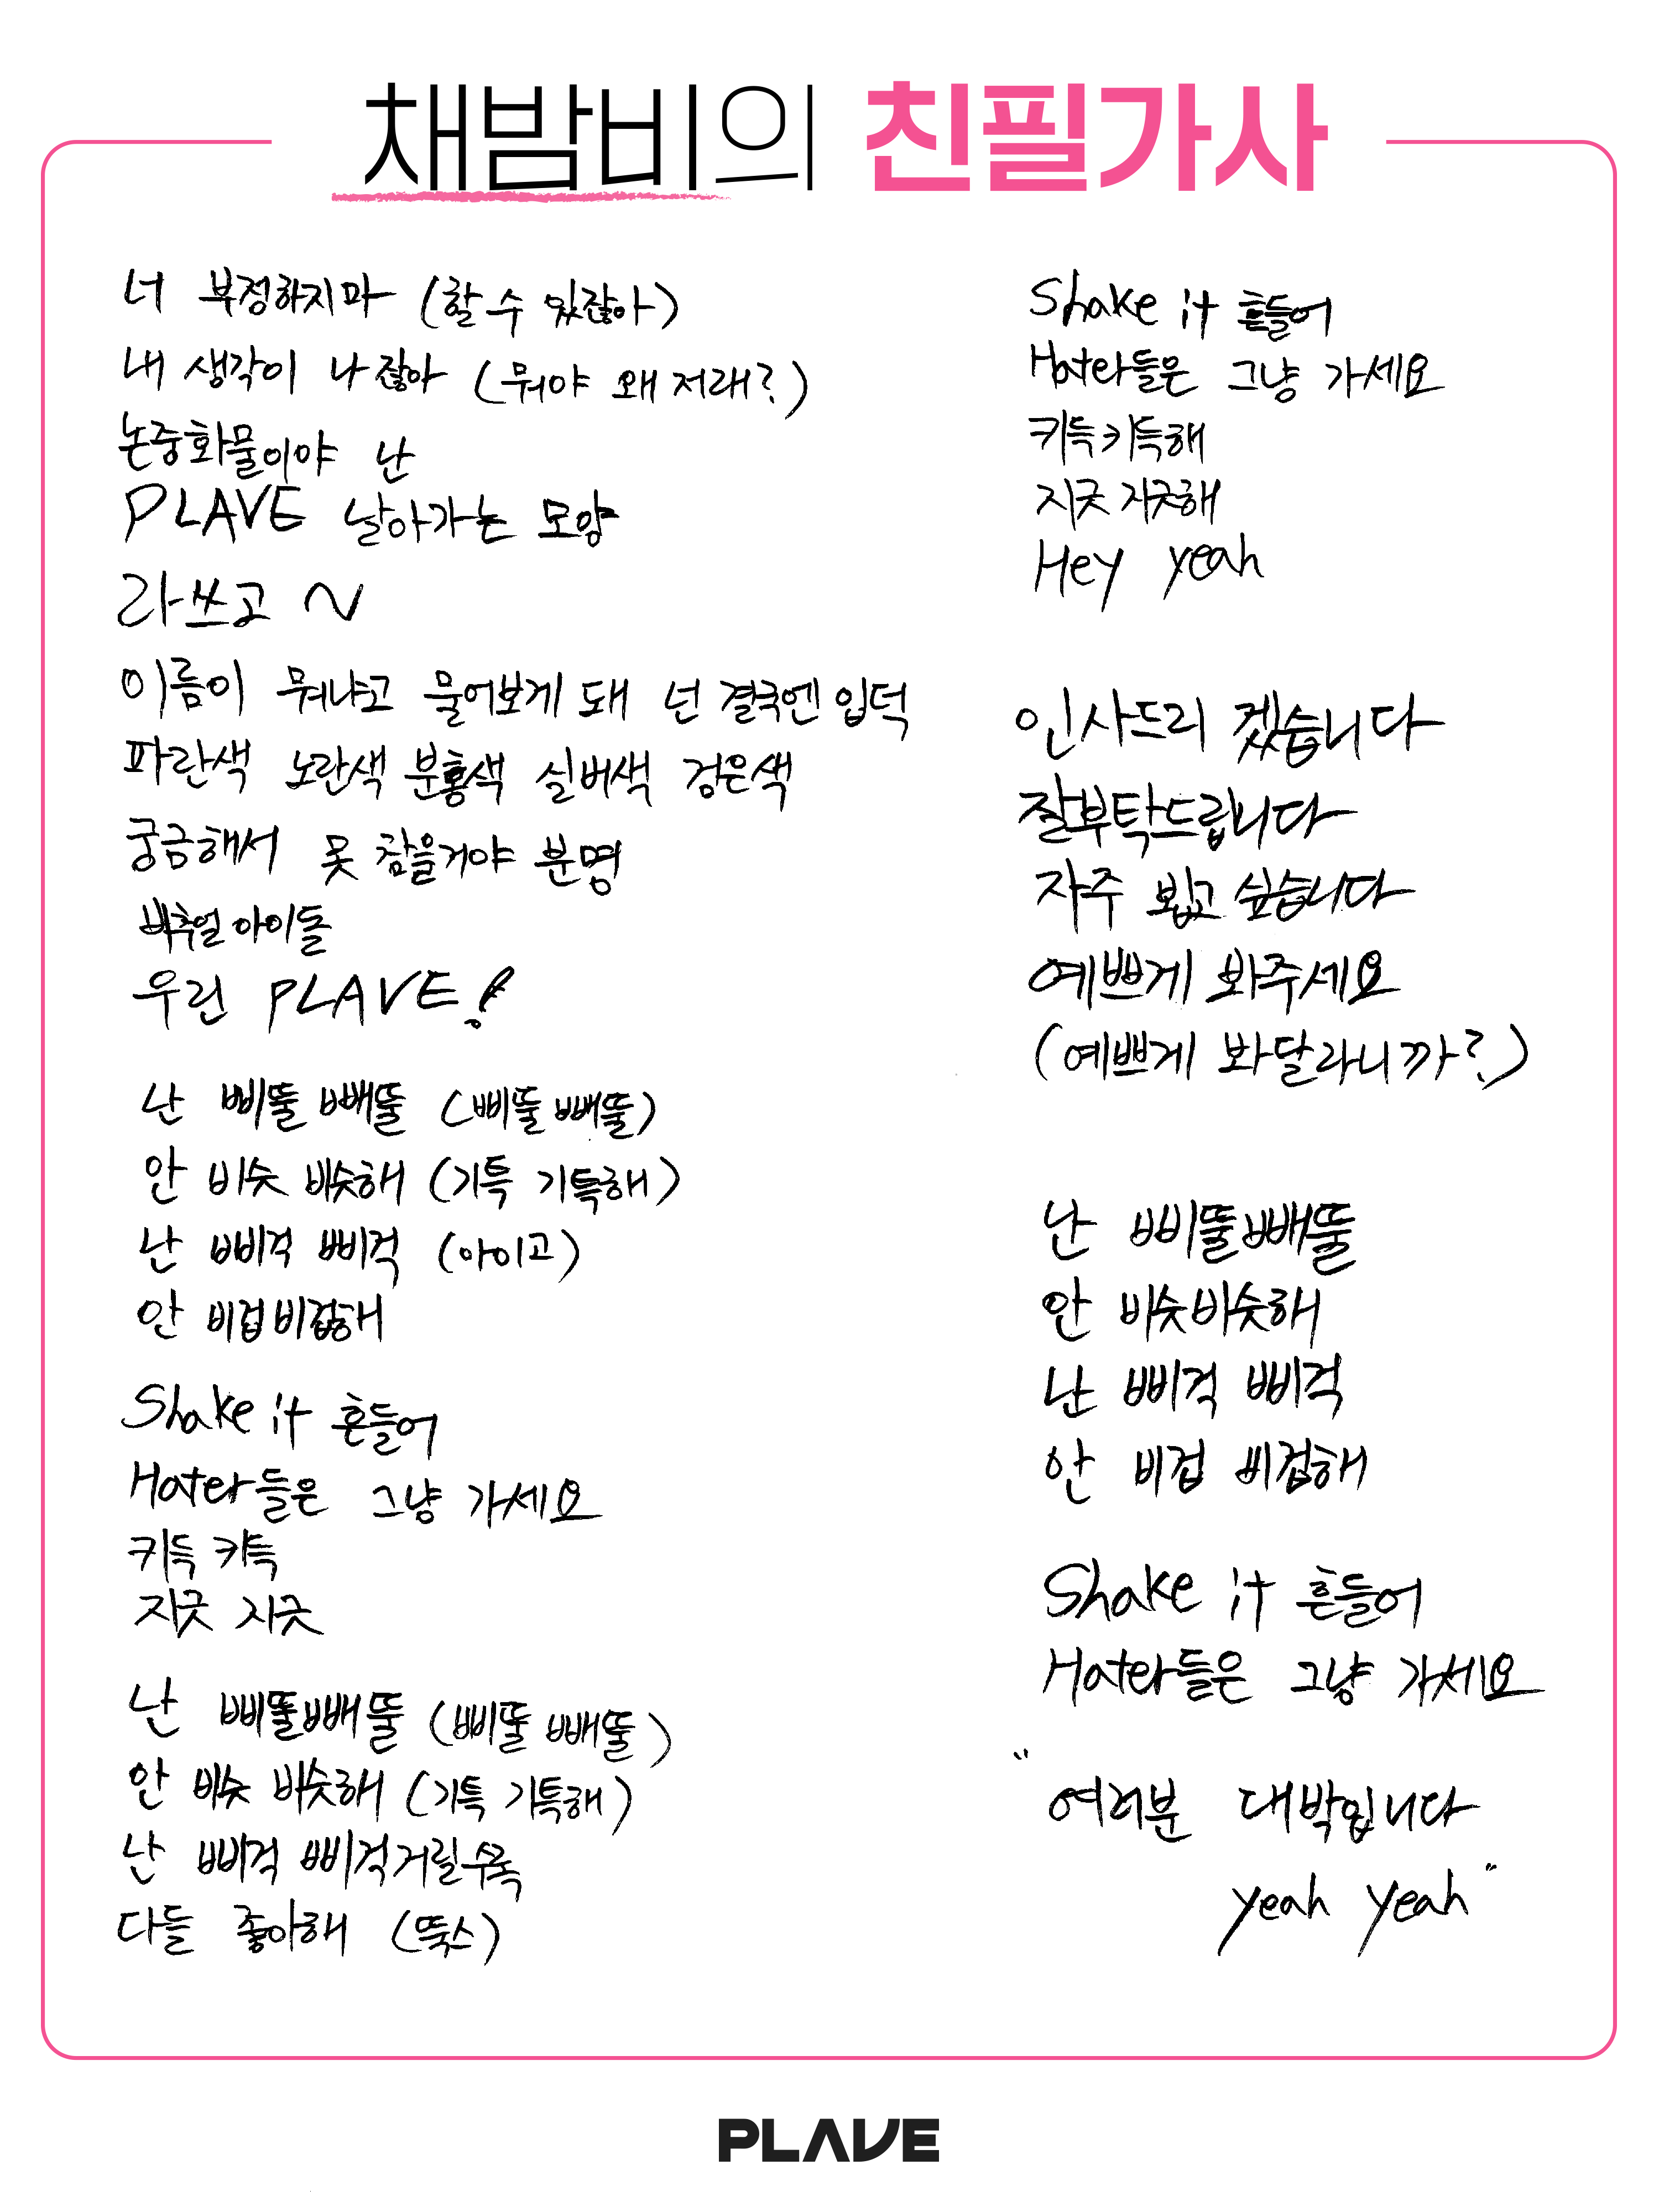 채밤비의 친필가사
너 부정하지마 (할 수 있잖아)
내 생각이 나잖아 (뭐야 왜 저래?)
논중화물이야 난
PLAVE 날아가는 모양
라쓰고 ~
이름이 뭐냐고 물어보게 돼 넌 결국엔 입덕
파란색 노란색 분홍색 실버색 검은색
궁금해서 못 참을거야 분명
버추얼 아이돌
우린 PLAVE!
난 삐뚤빼뚤 (삐뚤빼뚤)
안 비슷 비슷해 (기특 기특해)
난 삐걱 삐걱 (아이고)
안 비겁비겁해
Shake it 흔들어
Hater들은 그냥 가세요
키득 키득
지긋 지긋
난 삐뚤빼뚤 (삐뚤빼뚤)
안 비슷 비슷해 (기특 기특해)
난 삐걱 삐걱거릴수록
다들 좋아해 (뚝스)
Shake it 흔들어
Hater들은 그냥 가세요
키득키득해
지긋지긋해
Hey yeah
인사드리 겠습니다
잘부탁드립니다
자주 뵙고 싶습니다
예쁘게 봐주세요
(예쁘게 봐달라니까?)
난 삐뚤빼뚤
안 비슷비슷해
난 삐걱 삐걱
안 비겁 비겁해
Shake it 흔들어
Hater들은 그냥 가세요
"여러분 대박입니다
yeah yeah"
PLAVE